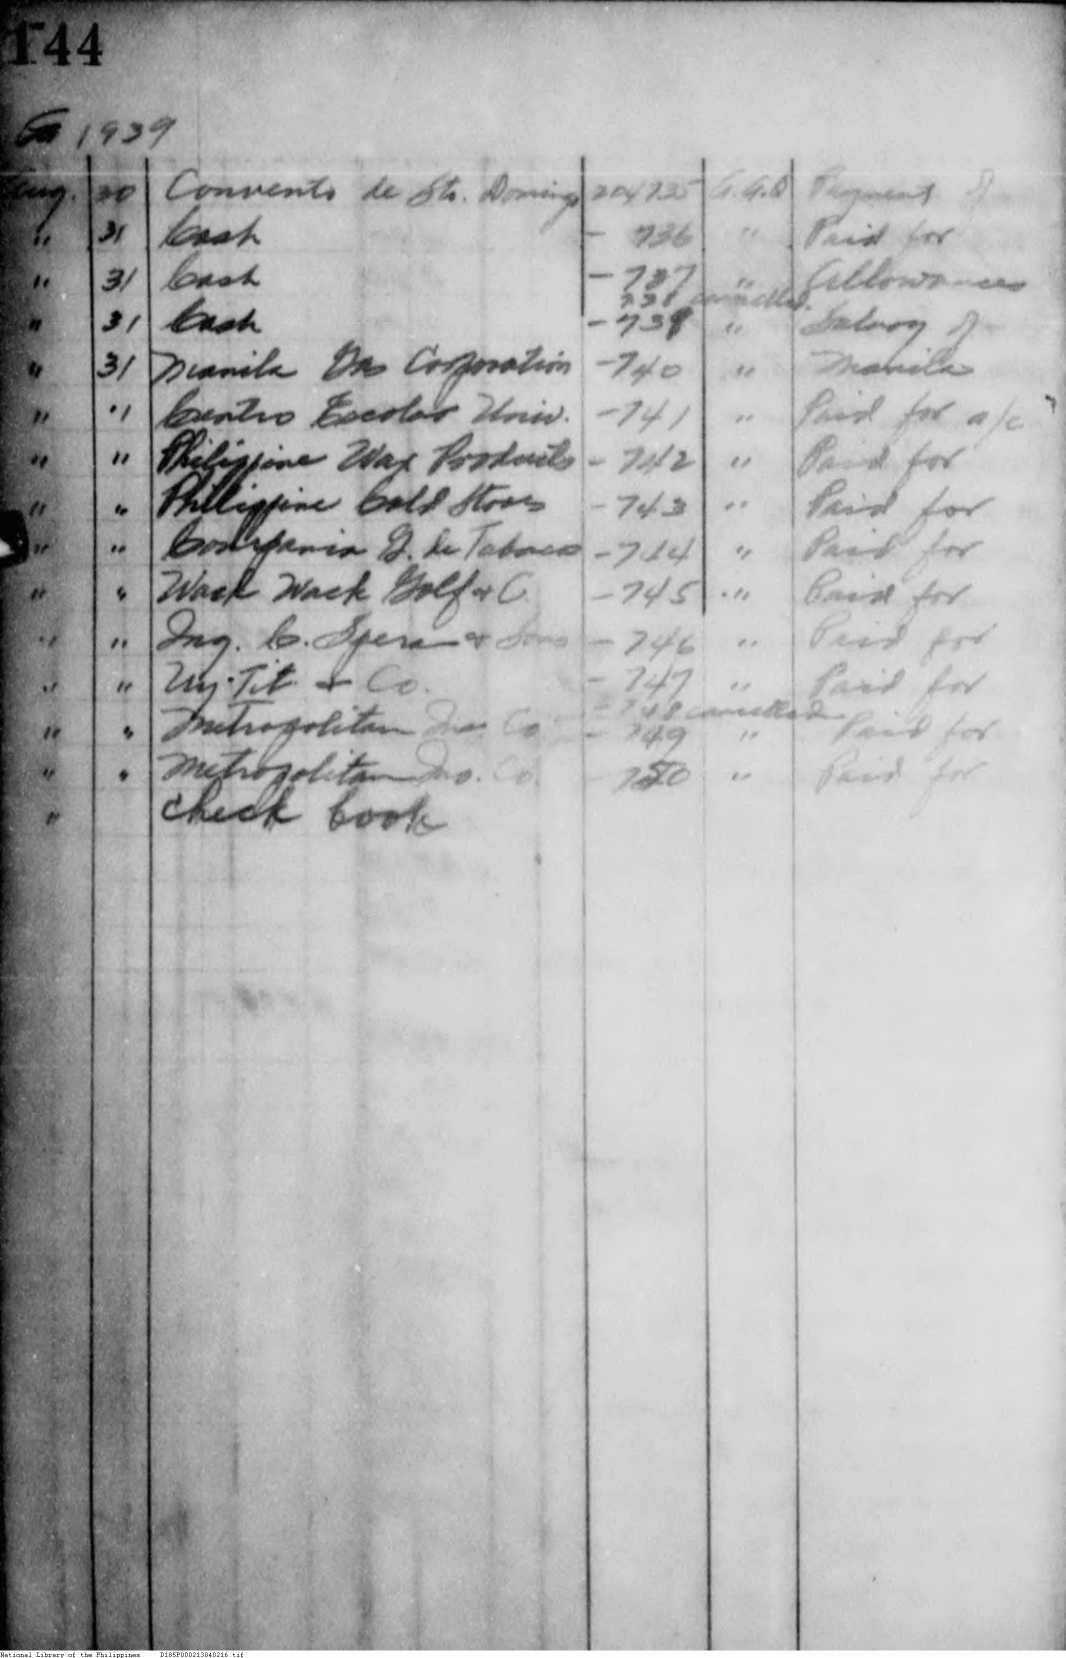 144
1939
Aug. 30 Convento de Sto. Domingo 204735 G.G.D Payment of
" 31 Cash - 736 " Paid for
" 31 Cash - 737 " Allowances
738 cancelled.
" 31 Cash - 739 " Salary of
" 31 Manila Gas Corporation - 740 " Manila
" " Centro Escolar Univ. - 741 " Paid for a/c
" " Philippine Wax Products - 742 " Paid for
" " Philippine Cold Stores - 743 " Paid for
" " Compania G. de Tabacos - 744 " Paid for
" " Wack Wack Golf & C. - 745 " Paid for
" " Ing. C. & Sons - 746 " Paid for
" " Uy-Tit & Co. - 747 " Paid for
- 748 cancelled
" " Metropolitan Ins Co - 749 " Paid for
" " Metropolitan Ins. Co. - 750 " Paid for
" Check book
National Library of the Philippines D185P000213040216.tif